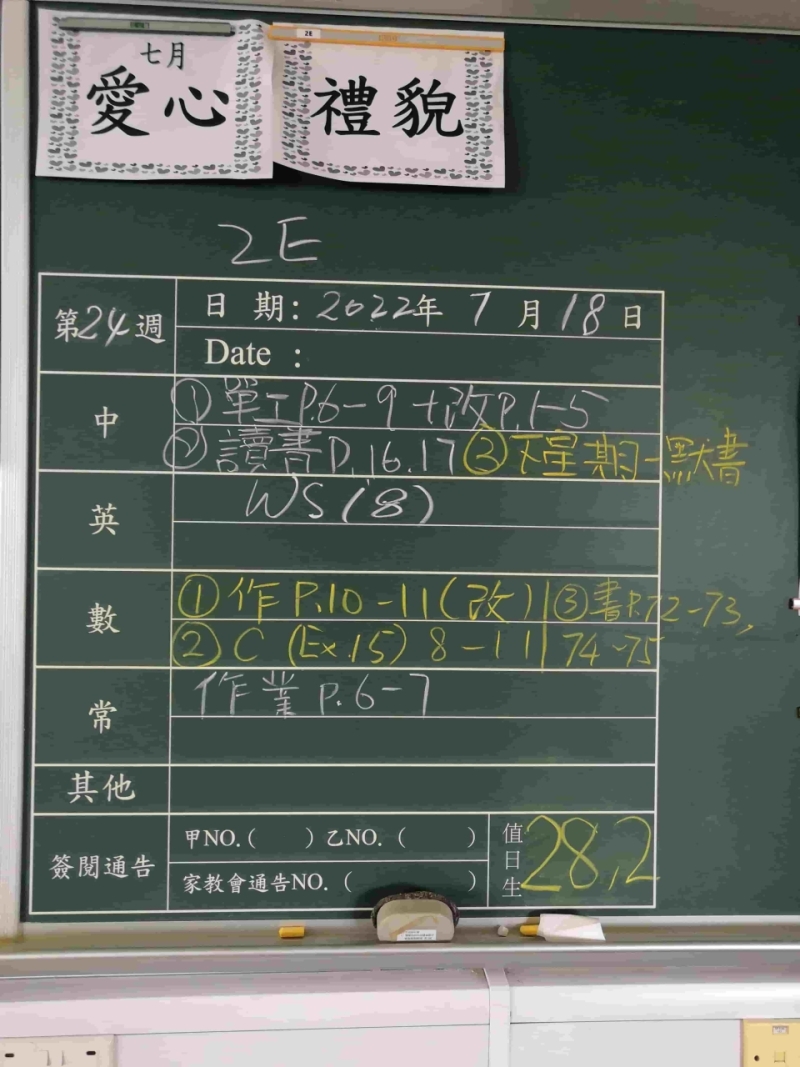 七月
愛心 禮貌
2E
第24週 日期：2022年 7月18日
Date：
中 ①單工P.6-9+改P.1-5
②讀書P.16.17 ③下星期一默書
英 WS(8)
數 ①作P.10-11(改) ③書P.72-73,
②C (Ex.15) 8-11 74-75
常 作業P.6-7
其他
簽閱通告 甲NO.( ) 乙NO.( ) 值日生 28,2
家教會通告NO.( )